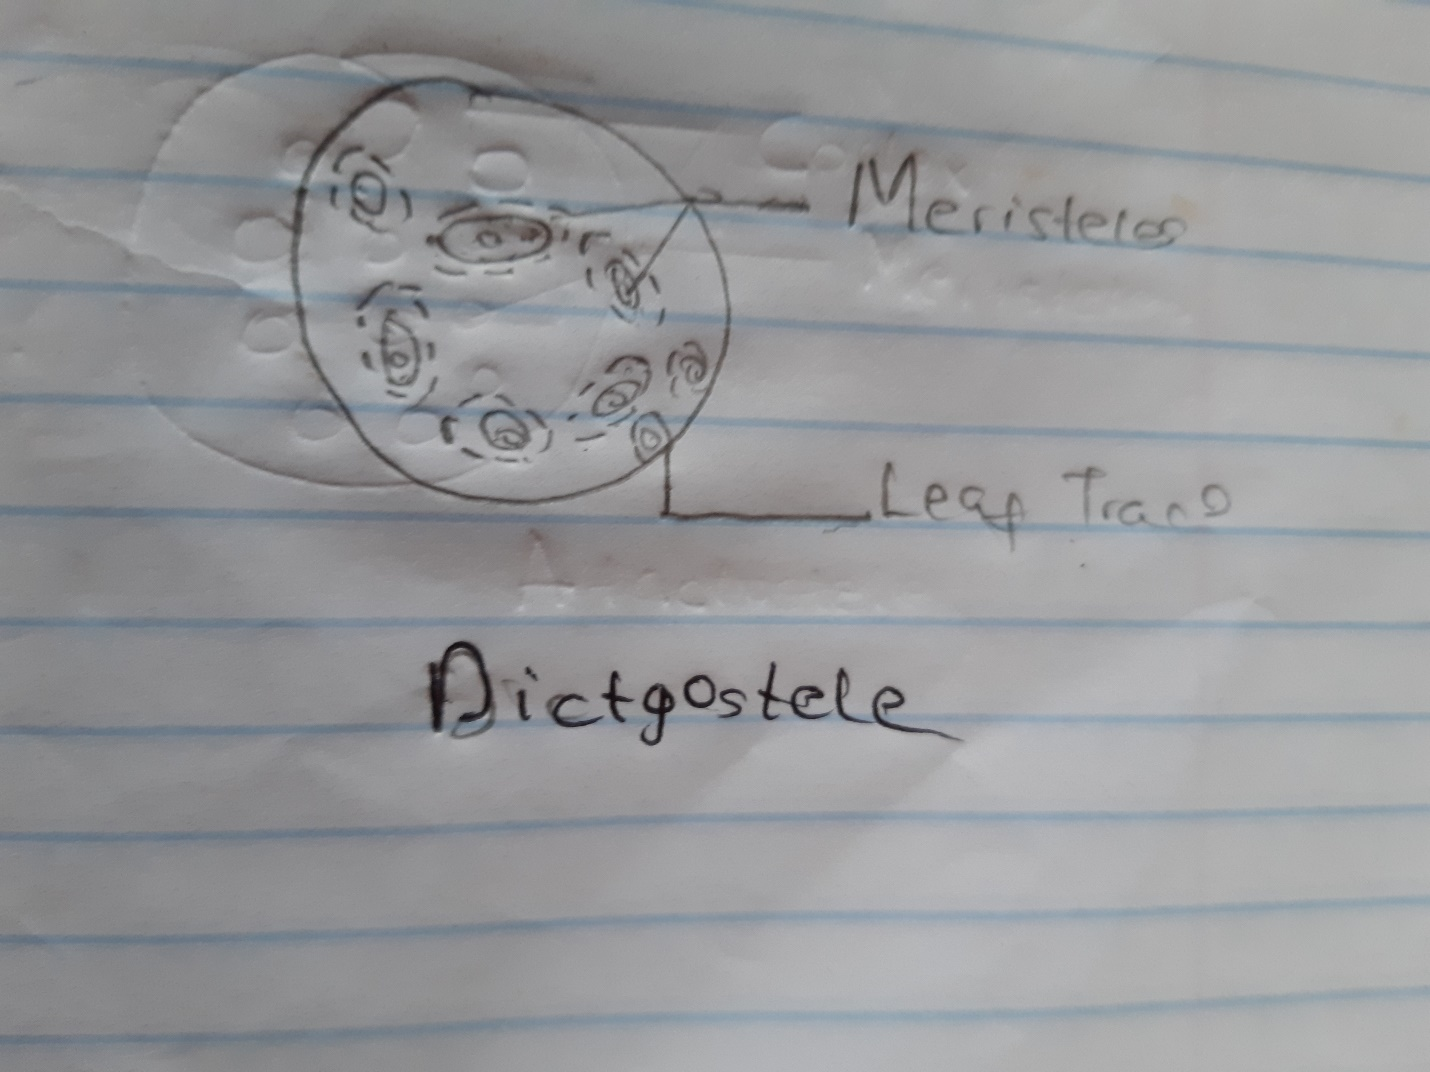 Meristeles
Leaf Trace
Dictyostele